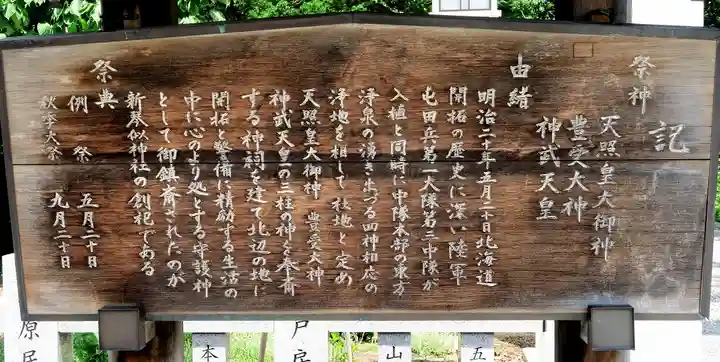 記
祭神
天照皇大御神
豊受大神
神武天皇
由緒
明治二十年五月二十日北海道
開拓の歴史に深い陸軍
屯田兵第一大隊第三中隊が
入植と同時に中隊本部の東方
浄泉の湧き出づる四神相応の
浄地を相して社地と定め
天照皇大御神 豊受大神
神武天皇の三柱の神を奉斎
する神祠を建て北辺の地に
開拓と警備に精励する生活の
中に心のより処とする守護神
として御鎮斎されたのが
新琴似神社の創祀である
祭典
例祭 五月二十日
秋季大祭 九月二十日
原居
本
戸居
山
五